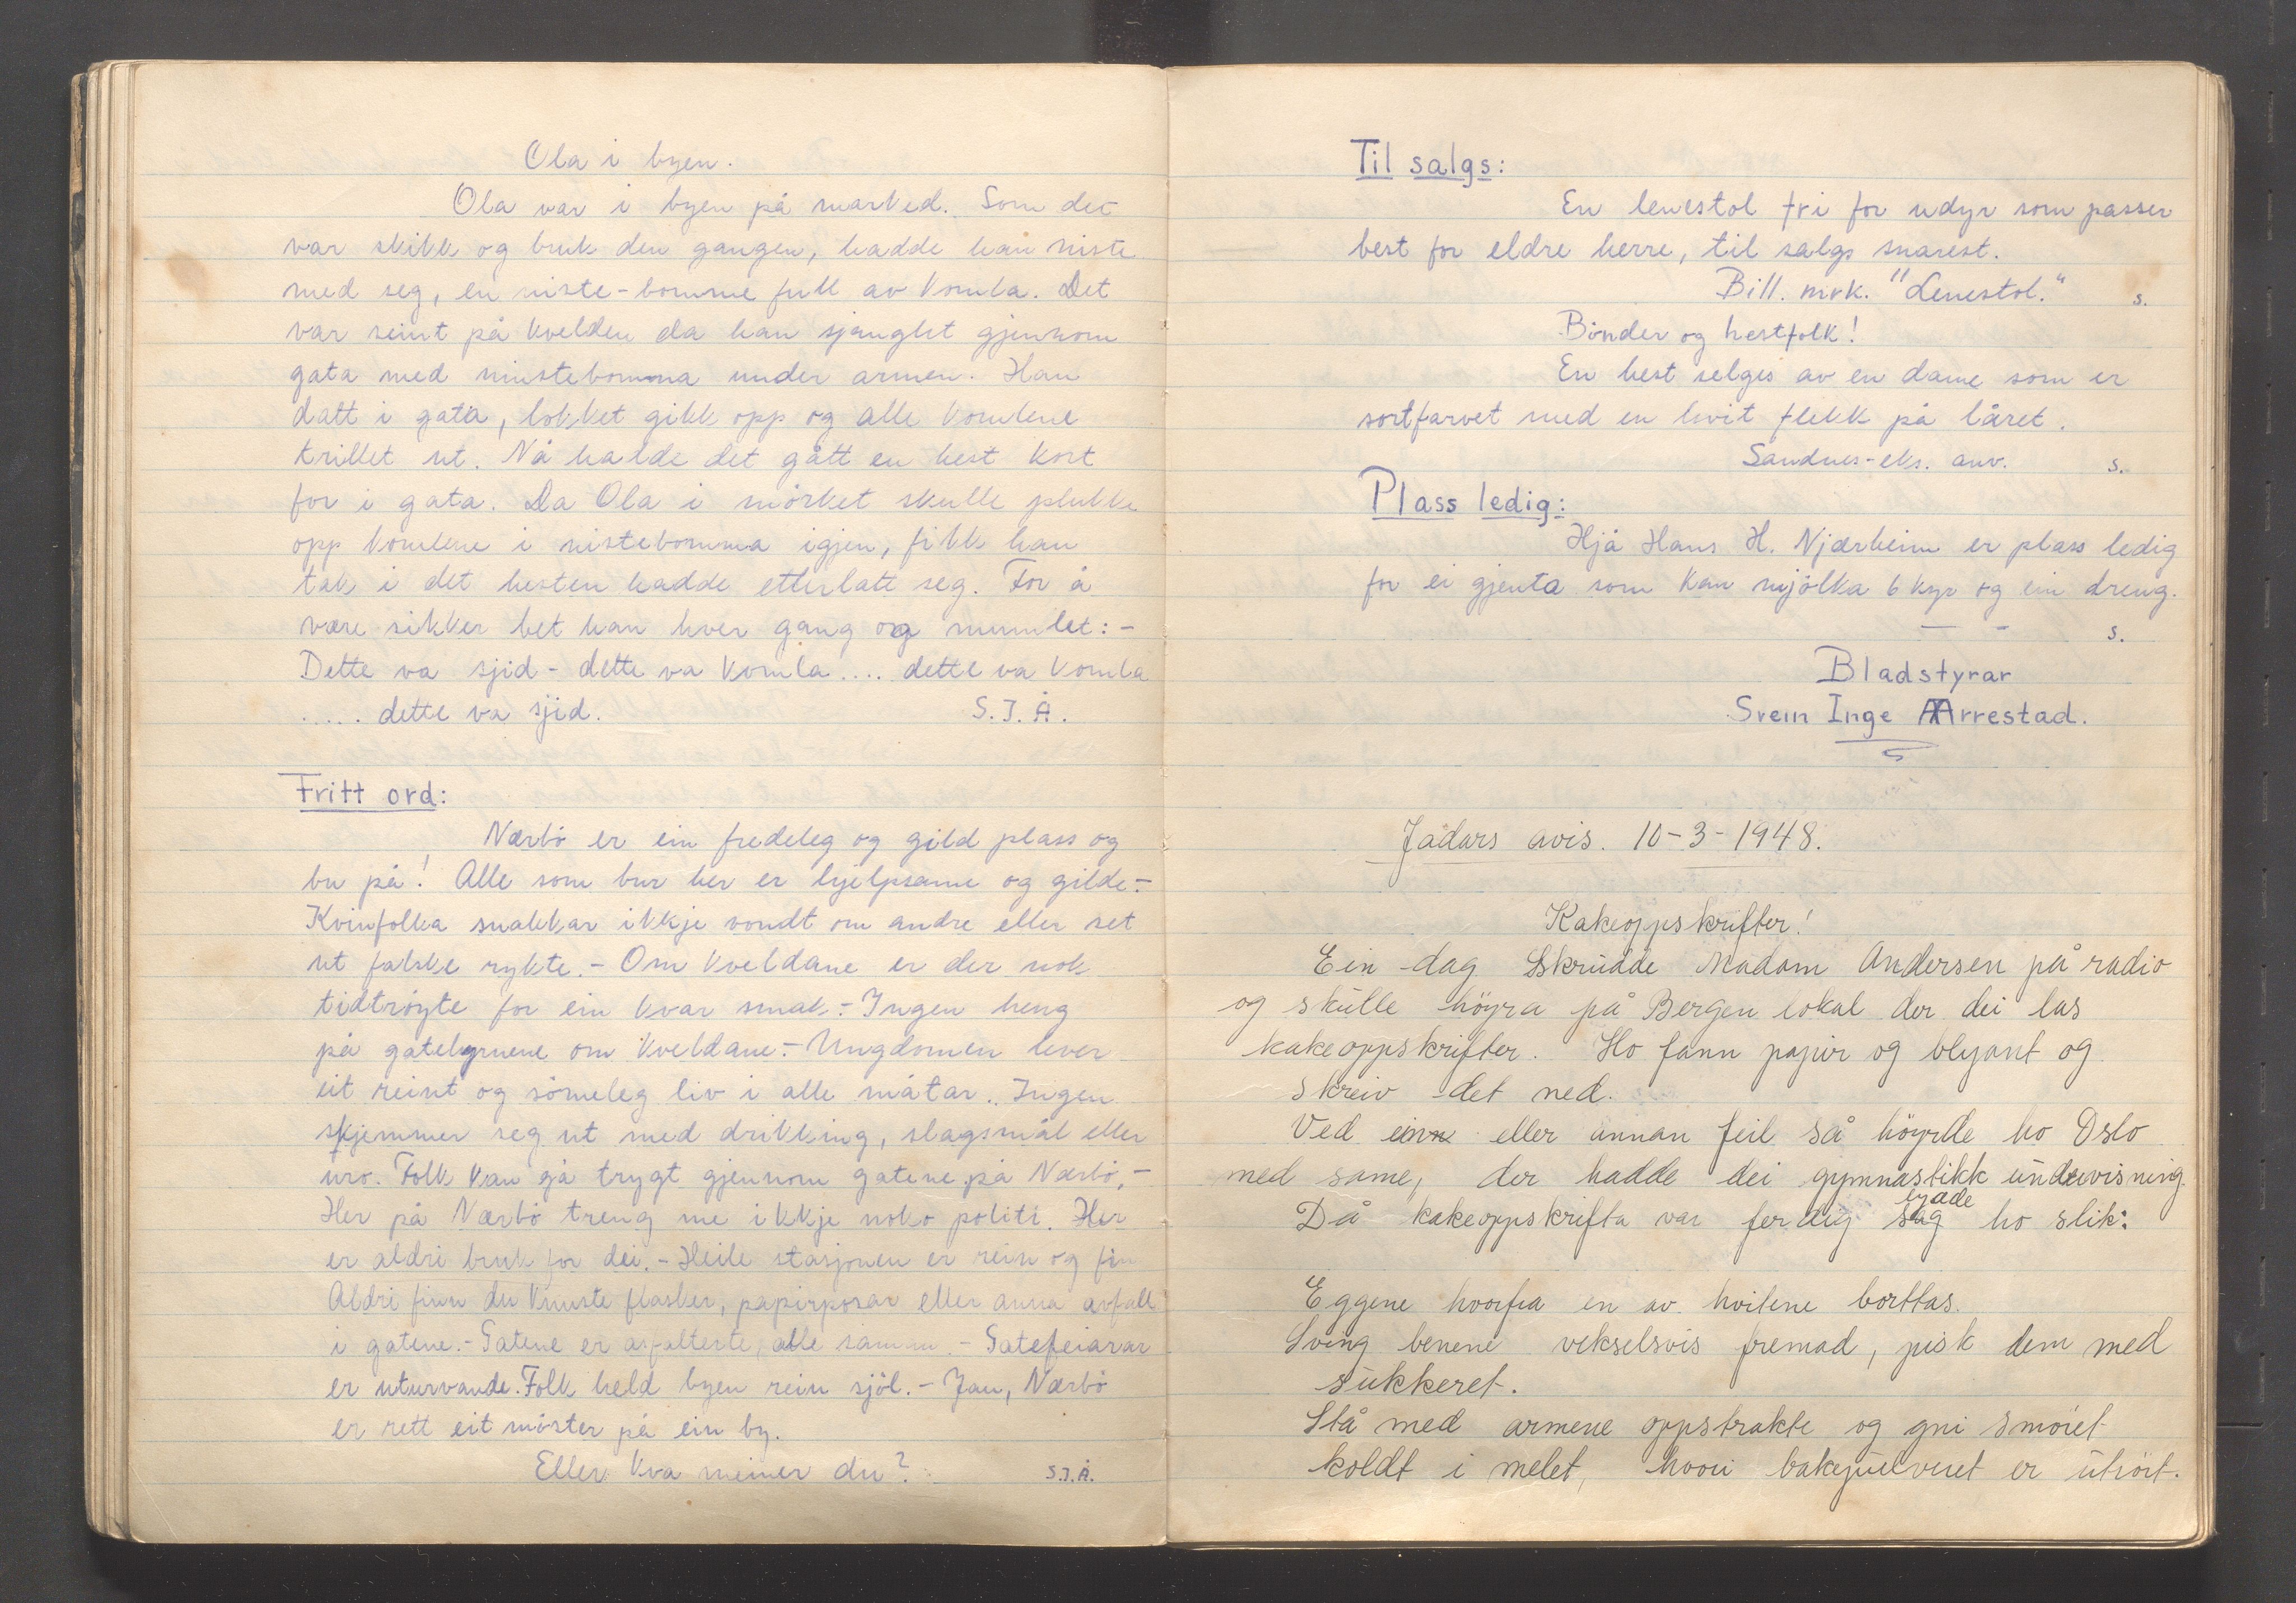 Ola i byen.
Ola var i byen på marked. Som det
var skikk og bruk den gangen, hadde han niste
med seg, en niste-bomme full av komla. Det
var seint på kvelden da han sjanglet gjennom
gata med nistebomma under armen. Han
datt i gata, lokket gikk opp og alle komlene
trillet ut. Nå hadde det gått en hest kort
for i gata. Da Ola i mörket skulle plukke
opp komlene i nistebomma igjen, fikk han
tak i det hesten hadde etterlatt seg. For å
være sikker bet han hver gang og mumlet: -
Dette va sjid - dette va komla .... dette va komla
..... dette va sjid. S.I.Å.
Fritt ord:
Nærbö er ein fredeleg og gild plass og
bu på! Alle som bur her er hjelpsame og gilde.-
Kvinfolka snakkar ikkje vondt om andre eller set
ut falske rykte.- Om kveldane er der nok
tidtröyte for ein kvar smak.- Ingen heng
på gatehyrnene om kveldane.- Ungdomen lever
eit reint og sömeleg liv i alle måtar. Ingen
skjemmer seg ut med drikking, slagsmål eller
uro. Folk kan gå trygt gjennom gatene på Nærbö.-
Her på Nærbö treng me ikkje noko politi. Her
er aldri bruk for dei.- Heile stasjonen er rein og fin
Aldri finn du knuste flasker, papirposar eller anna avfall
i gatene.- Gatene er asfalterte, alle saman.- Gatefeiarar
er uturvande. Folk held byen rein sjöl.- Jau, Nærbö
er rett eit mönster på ein by.
Eller kva meiner du? S.I.Å.
Til salgs:
En lenestol fri for udyr som passer
best for eldre herre, til salgs snarest.
Bill. mrk. "Lenestol." s.
Bönder og hestfolk!
En hest selges av en dame som er
sortfarvet med en hvit flekk på låret.
Sandnes-eks. anv. s.
Plass ledig:
Hjå Hans H. Njærheim er plass ledig
for ei gjenta som kan mjölka 6 kyr og ein dreng.
s.
Bladstyrar
Svein Inge Arrestad.
Jadars avis. 10-3-1948.
Kakeoppskrifter!
Ein dag skrudde Madam Andersen på radio
og skulle höyra på Bergen lokal der dei las
kakeoppskrifter. Ho fann papir og blyant og
skreiv det ned.
Ved ein eller annan feil så höyrde ho Oslo
med same, der hadde dei gymnastikk undervisning.
Då kakeoppskrifta var ferdig lyäde ho slik:
Eggene hvorfra en av hvitene borttas.
Sving benene vekselsvis fremad, pisk dem med
sukkeret.
Stå med armene oppstrakte og gni smöret
koldt i melet, hvori bakepulveret er utrört.